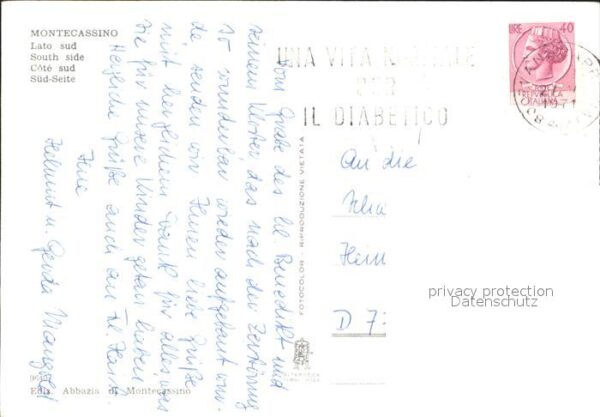 MONTECASSINO
Lato sud
South side
Côté sud
Süd-Seite
Vom Grabe des hl. Benedikt und
seinem Kloster das nach der Zerstörung
so wunderbar wieder aufgebaut wur-
de senden wir Ihnen liebe Grüße
mit herzlichem Dank für alles, was
Sie für unsere Kinder getan haben.
Herzliche Grüße auch an
Ihre
Helmut u. Gerda
Ediz. Abbazia di Montecassino
FOTOCOLOR - RIPRODUZIONE VIETATA
UNA VITA NORMALE
PER
IL DIABETICO
LIRE 40
REPUBBLICA
ITALIANA
1971
An die
Heim
D 7
privacy protection
Datenschutz